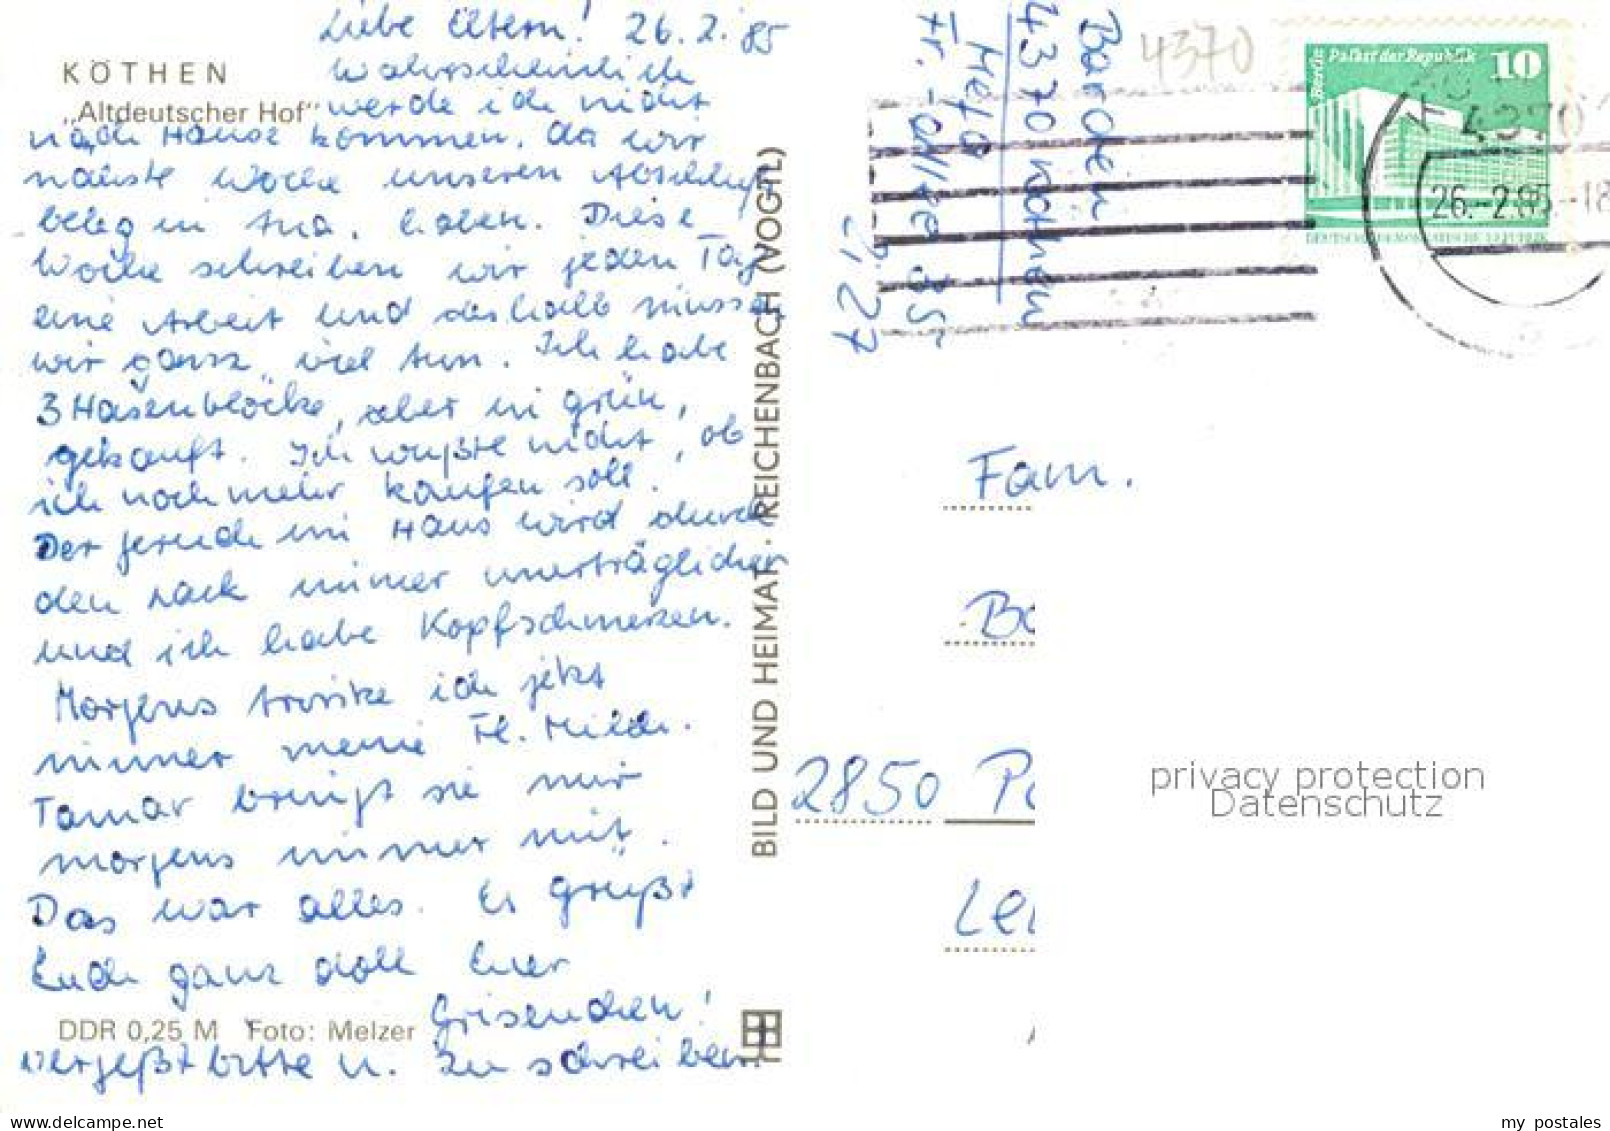 Liebe Eltern! 26.2.85
KÖTHEN
Wahrscheinlich
„Altdeutscher Hof" werde ich nicht
nach Hause kommen, da wir
nächste Woche unseren Abschluß
beleg in haben. Diese
Woche schreiben wir jeden Tag
eine Arbeit und deshalb müssen
wir ganz viel tun. Ich habe
3 Hasenblöcke, aber in grün,
gekauft. Ich wußte nicht, ob
ich noch mehr kaufen soll.
Der Geruch im Haus wird durch
den Lack immer unerträglicher
und ich habe Kopfschmerzen.
Morgens trinke ich jetzt
immer meine Fl. Milch.
Tamar bringt sie mir
morgens immer mit.
Das war alles. Es grüßt
Euch ganz doll Euer
Grisenchen!
DDR 0,25 M Foto: Melzer
Vergeßt bitte n. zu schreiben!
BILD UND HEIMAT · REICHENBACH (VOGTL)
Barchen
4370 Köthen
35
Z. 27
4370
Berlin Palast der Republik 10
DEUTSCHE DEMOKRATISCHE REPUBLIK
4370
26.-2.85.-18
Fam.
Ba
2850 Pa
Lei
privacy protection
Datenschutz
my postales